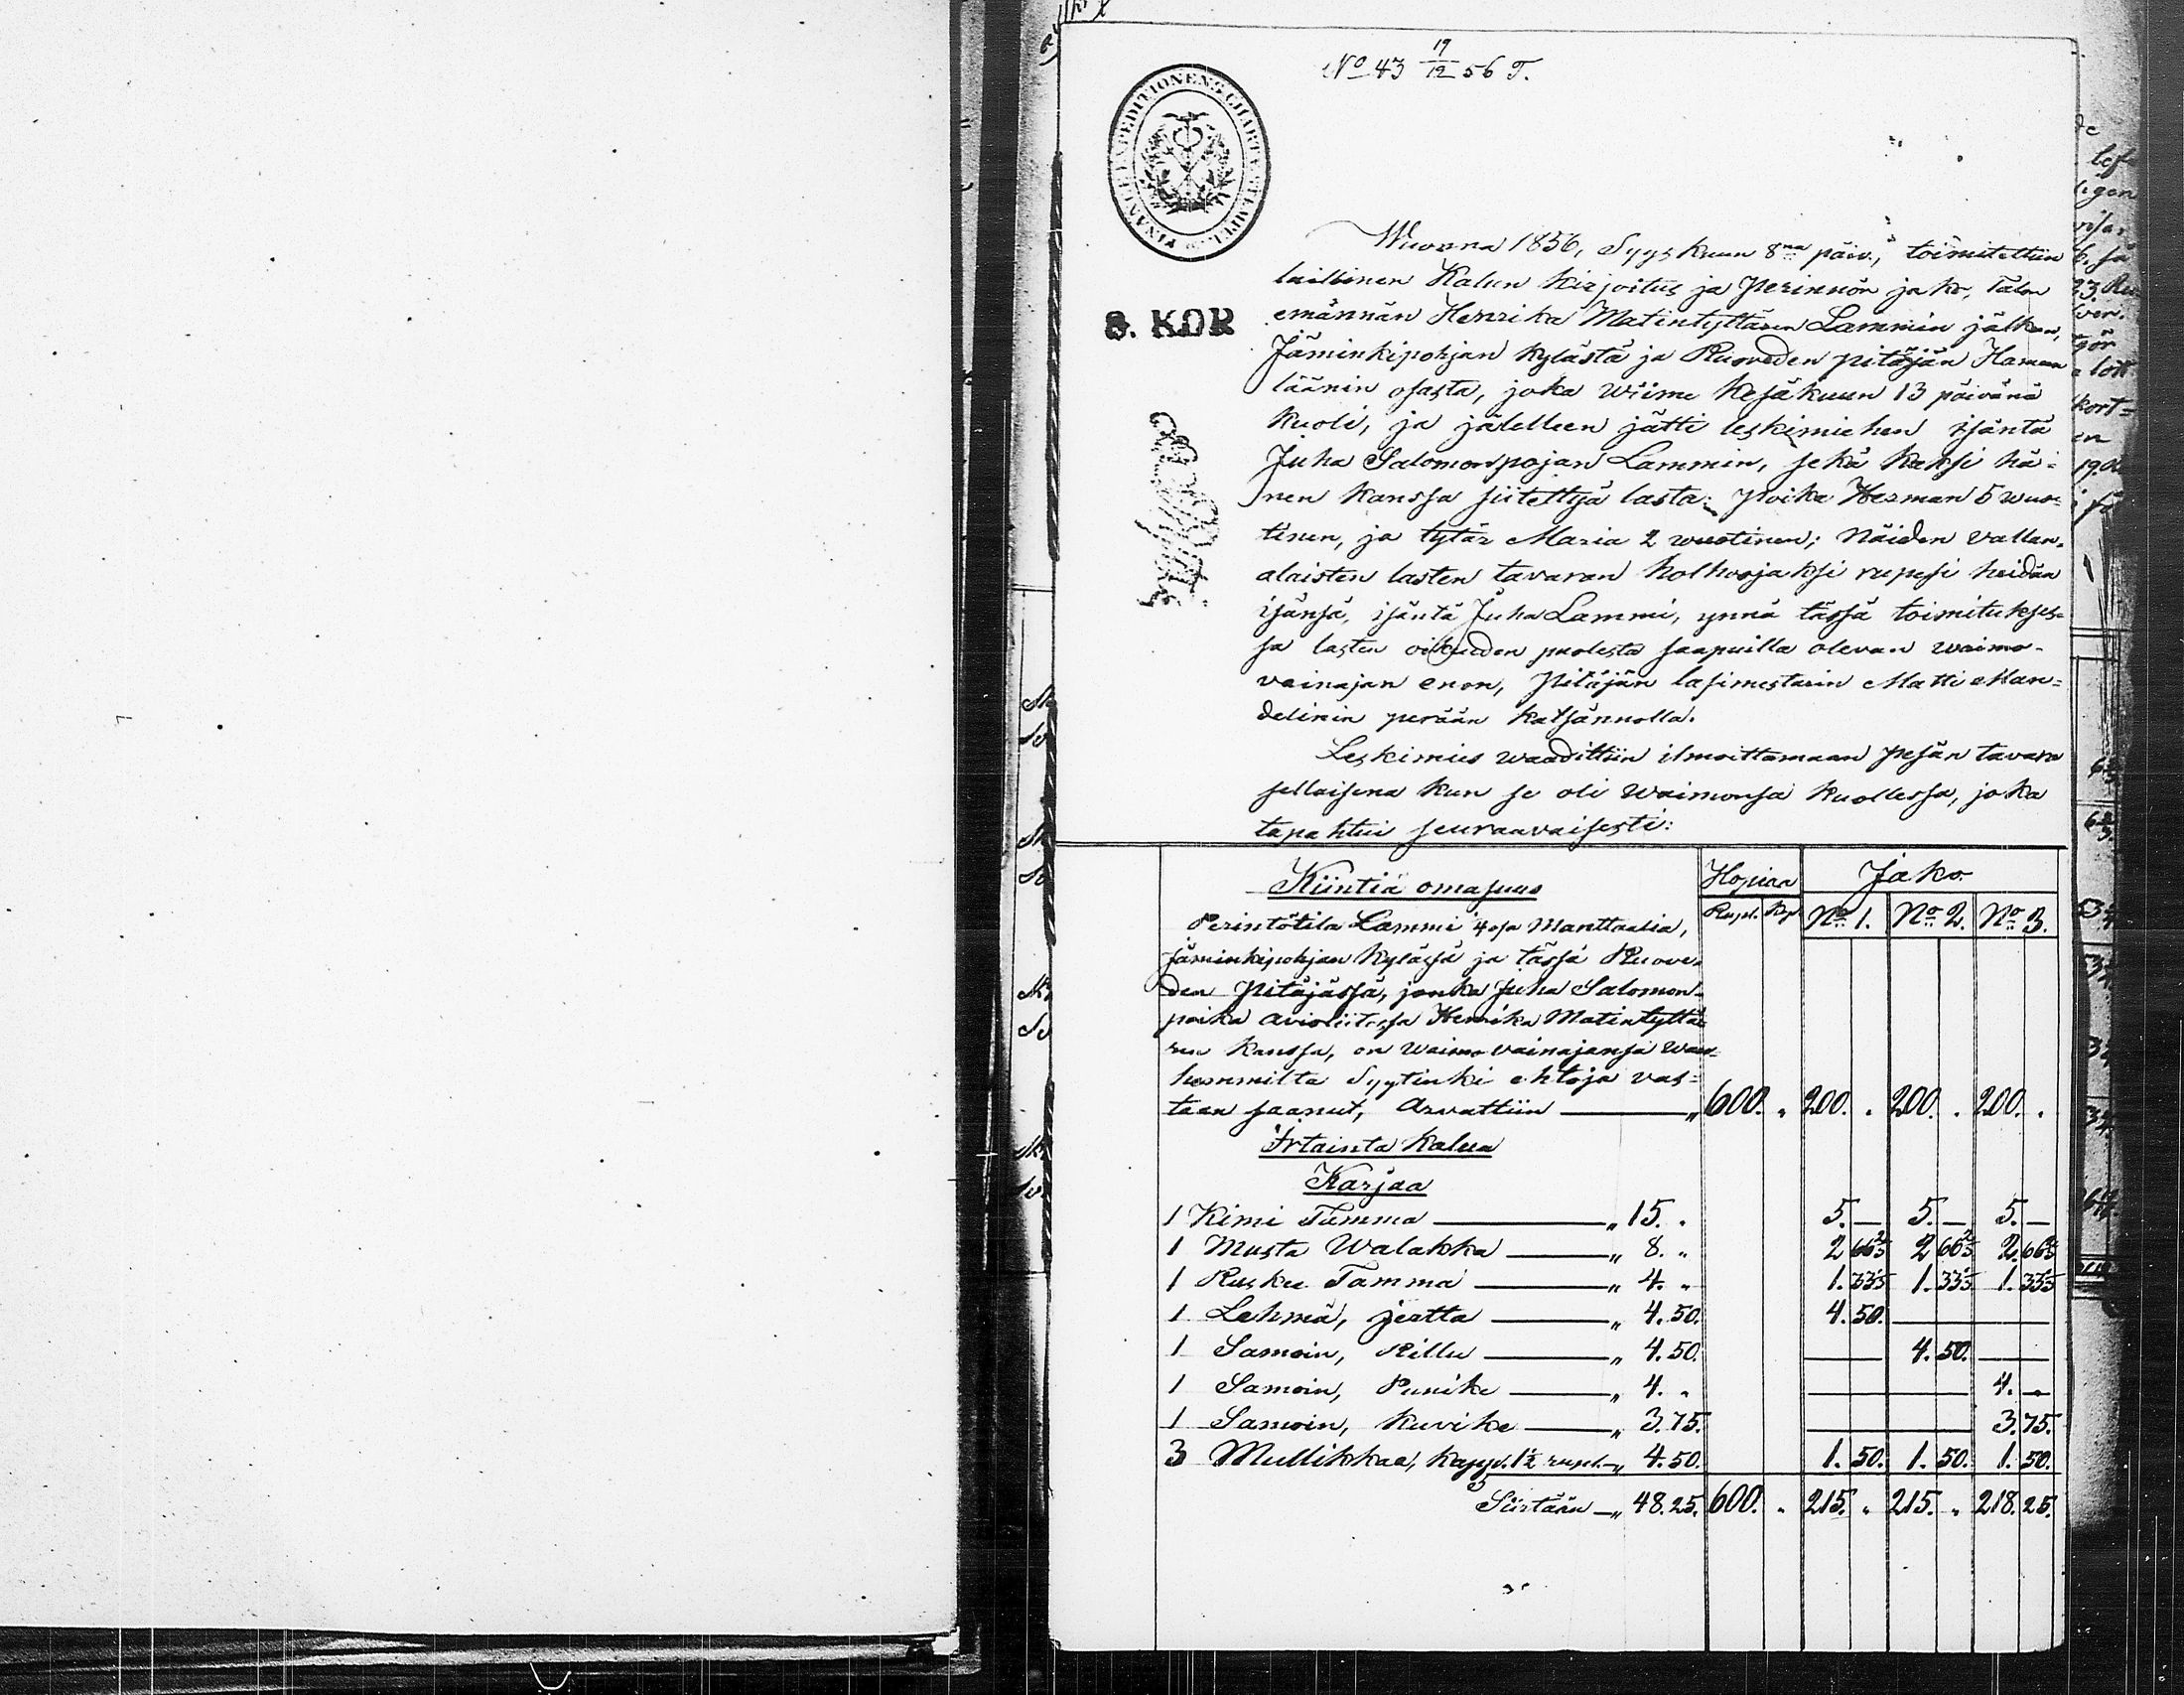 No 43 19/12 56 T.
FINANCE EXPEDITIONENS CHARTÆ STEMPEL
8. KOP.
Wuonna 1856, Syyskuun 8na päiv., toimitettiin
laillinen Kalun Kirjoitus ja Perinnön jako, Talon
emännän Henrika Matintyttären Lammin jälken,
Jäminkipohjan Kylästä ja Ruoveden pitäjän Hämeen
läänin osasta, joka wiime Kesäkuun 13 päivänä
Kuoli, ja jälelleen jätti leskimiehen isäntä
Juha Salomonpojan Lammin, sekä kaksi hä-
nen kanssa siitettyä lasta: poika Herman 5 wuo-
tinen, ja tytär Maria 2 wuotinen; Näiden vallan-
alaisten lasten tavaran holhoojaksi rupesi heidän
isänsä, isäntä Juha Lammi, ynnä tässä toimitukses-
sa lasten oikeuden puolesta saapuilla olevan waimo-
vainajan enon, Pitäjän lasimestarin Matti Man-
delinin perään katsännolla.
Leskimies waadittiin ilmoittamaan pesän tavara
sellaisena kun se oli waimonsa kuollessa, joka
tapahtui seuraavaisesti:
Kiintiä omasuus Hopiaa Jako.
Rupl. Kp. No 1. No 2. No 3.
Perintötila Lammi 4 osa Manttaalia,
Jäminkipohjan Kylässä ja tässä Ruove-
den Pitäjässä, jonka Juha Salomon-
poika avioliitossa Henrika Matintyttä-
ren kanssa, on waimovainajansa wan-
hemmilta Syytinki ehtoja vas-
taan saanut, Arvattiin — „ 600. „ 200. „ 200. „ 200. „
Irtainta Kalua
Karjaa
1 Kimi Tamma — „ 15. „ 5. — 5. — 5. —
1 Musta Walakka — „ 8. „ 2 66 2/3 2 66 2/3 2. 66 2/3
1 Rusku Tamma — „ 4. „ 1. 33 1/3 1. 33 1/3 1. 33 1/3
1 Lehmä, — „ 4. 50. 4. 50. —
1 Samoin, Killu — „ 4. 50. — 4. 50. —
1 Samoin, Punike — „ 4. „ — 4. —
1 Samoin, Kuvike — „ 3. 75. — 3. 75.
3 Mullikkaa, kapp. 1 1/2 rupl. — „ 4. 50. 1. 50. 1. 50. 1. 50.
Siirtään — „ 48. 25. 600. „ 215. „ 215. „ 218. 25.